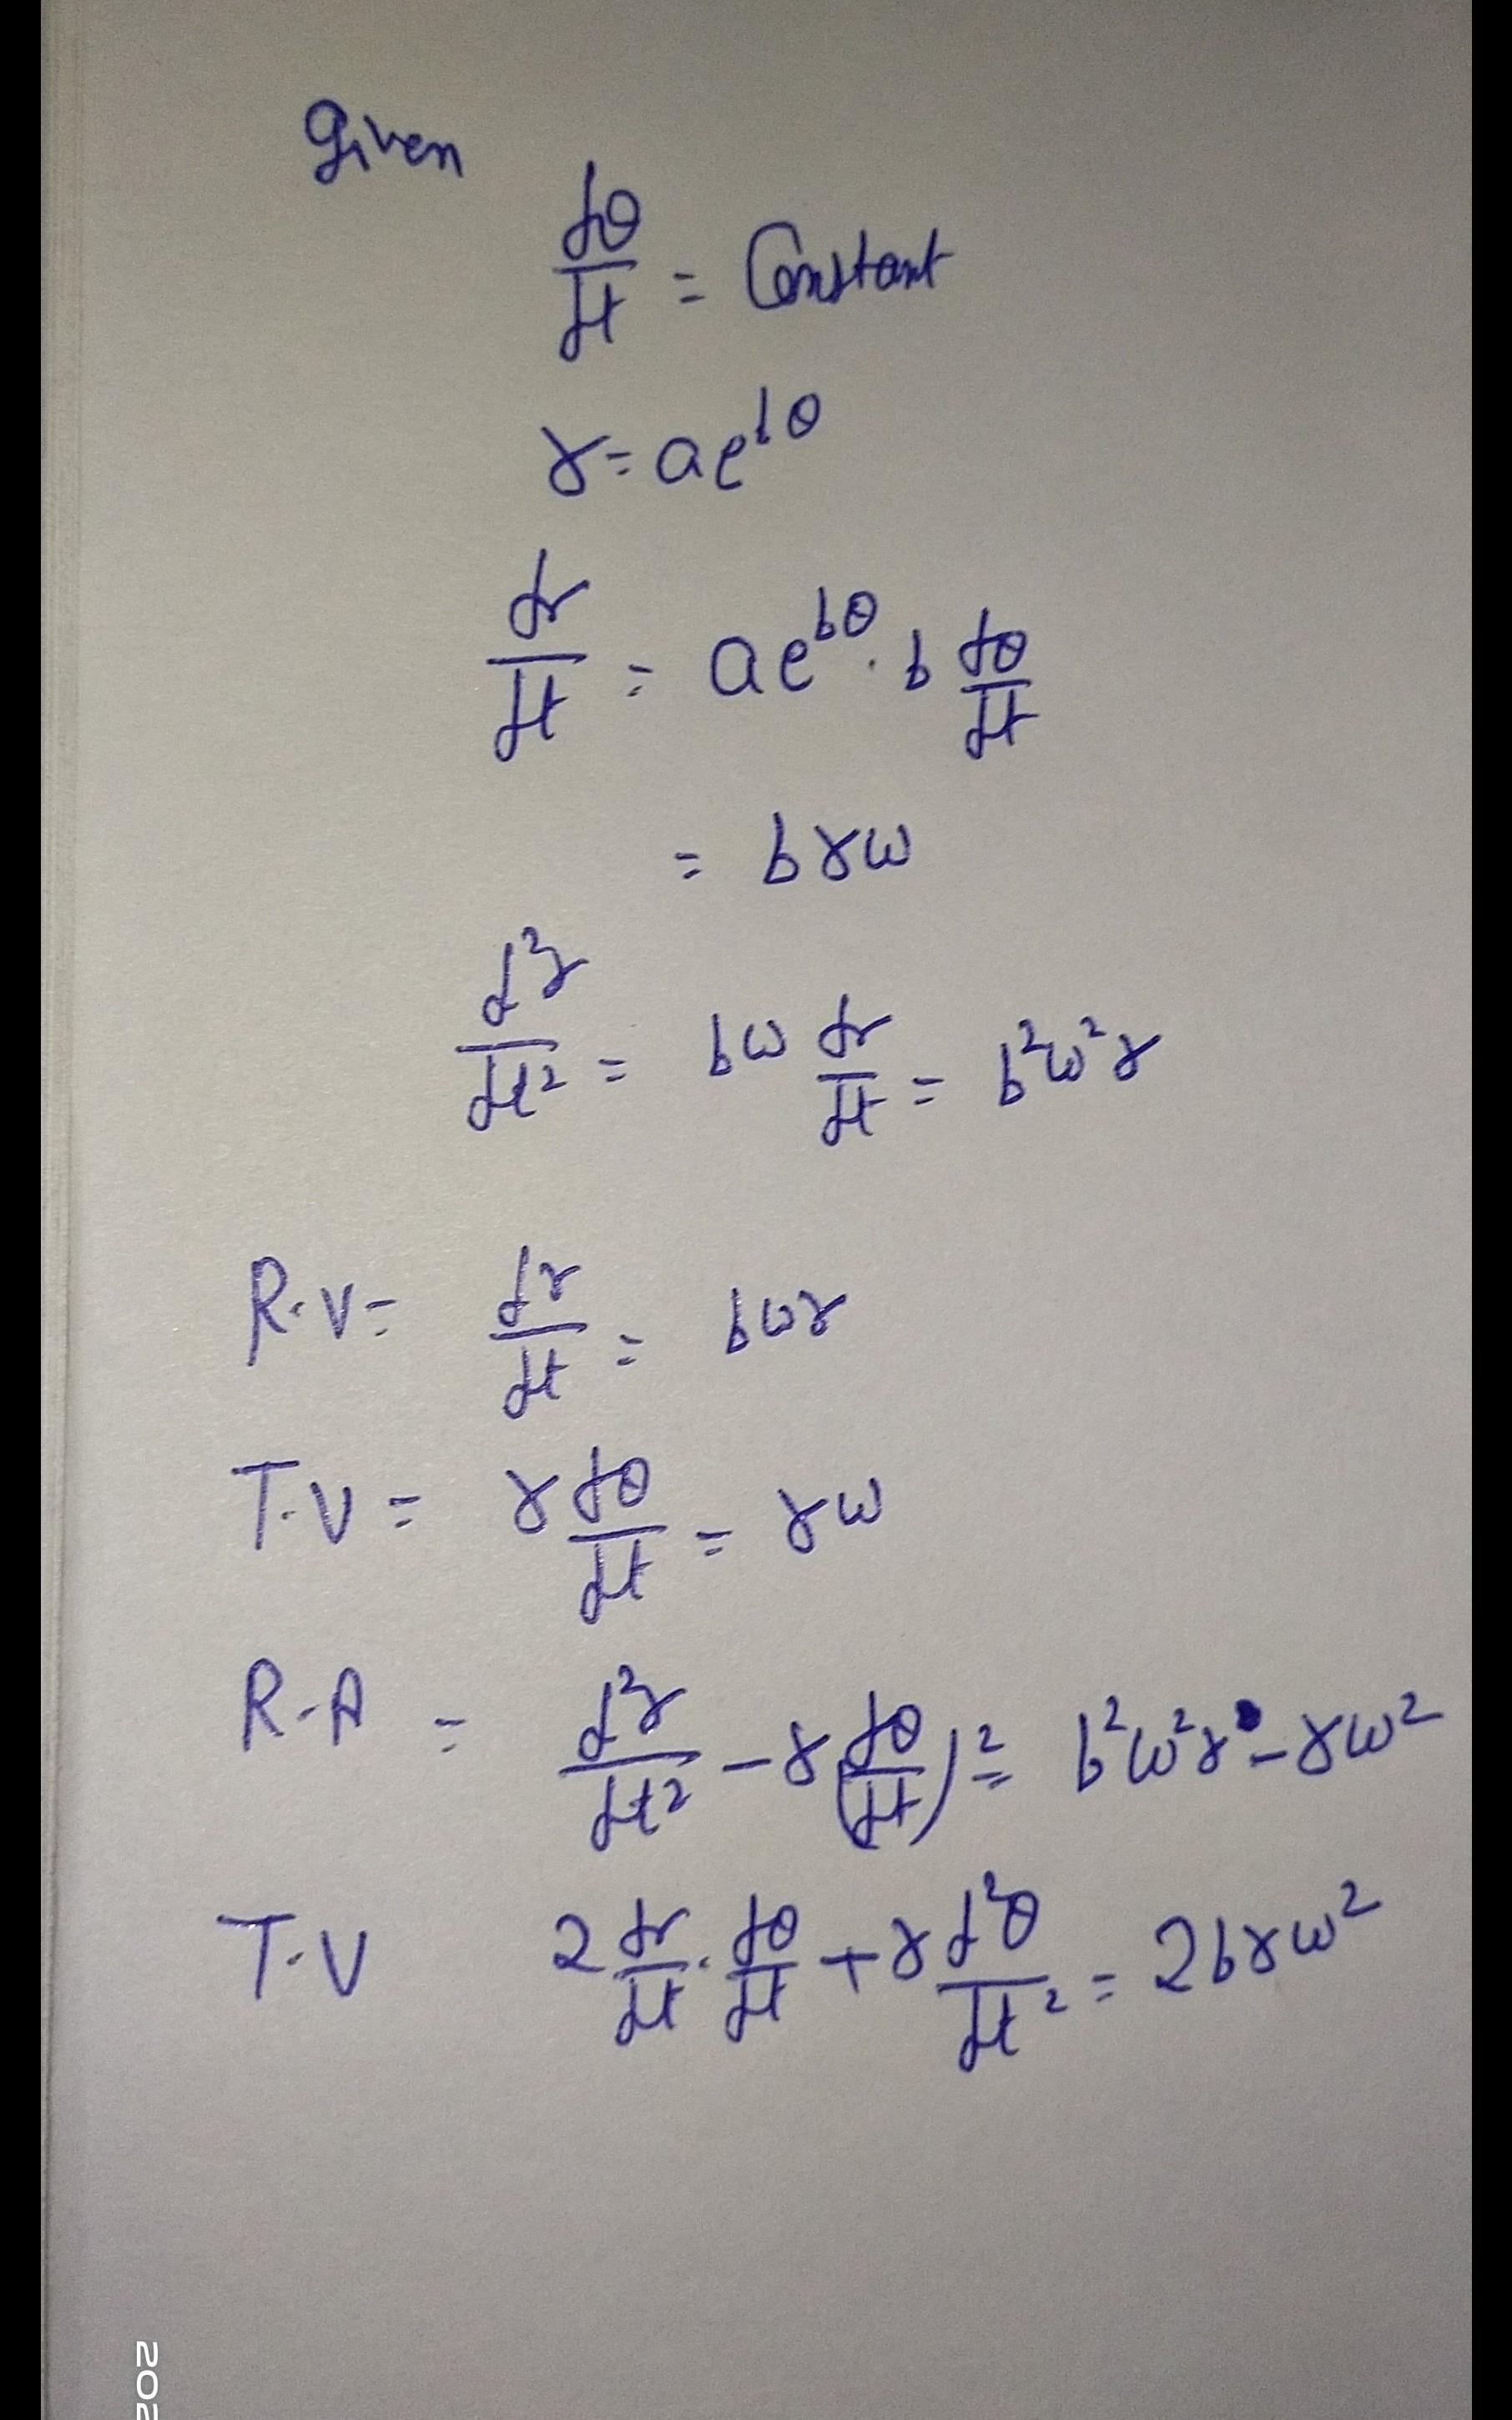 Given
dθ/dt = Constant
r = ae^{bθ}
dr/dt = ae^{bθ} · b dθ/dt
= brω
d²r/dt² = bω dr/dt = b²ω²r
R.V = dr/dt = bωr
T.V = r dθ/dt = rω
R.A = d²r/dt² - r(dθ/dt)² = b²ω²r - rω²
T.V 2 dr/dt · dθ/dt + r d²θ/dt² = 2brω²
202